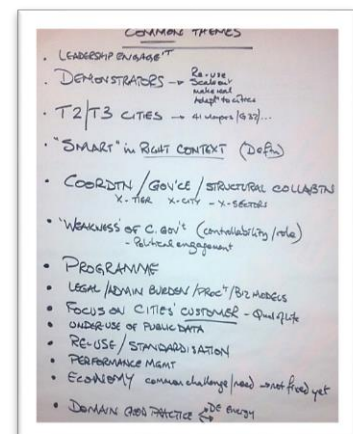 COMMON THEMES
• LEADERSHIP ENGAGE'T
• DEMONSTRATORS → Re-use
Scale out
make real
Adapt to cities
• T2/T3 CITIES → 41 mayors/G32/...
• "SMART" in RIGHT CONTEXT (Defn)
• COORDTN / GOV'CE / STRUCTURAL COLLABTN
X-TIER X-CITY - X-SECTORS
• 'WEAKNESS' OF C. GOV'T (controllability/role)
- Political engagement
• PROGRAMME
• LEGAL/ADMIN BURDEN/PROC'T/BIZ MODELS
• FOCUS ON CITIES' CUSTOMER - Qual of Life
• UNDER-USE OF PUBLIC DATA
• RE-USE / STANDARDISATION
• PERFORMANCE MGMT
• ECONOMY common challenge/need → not fixed yet
• DOMAIN GOOD PRACTICE → DE Energy